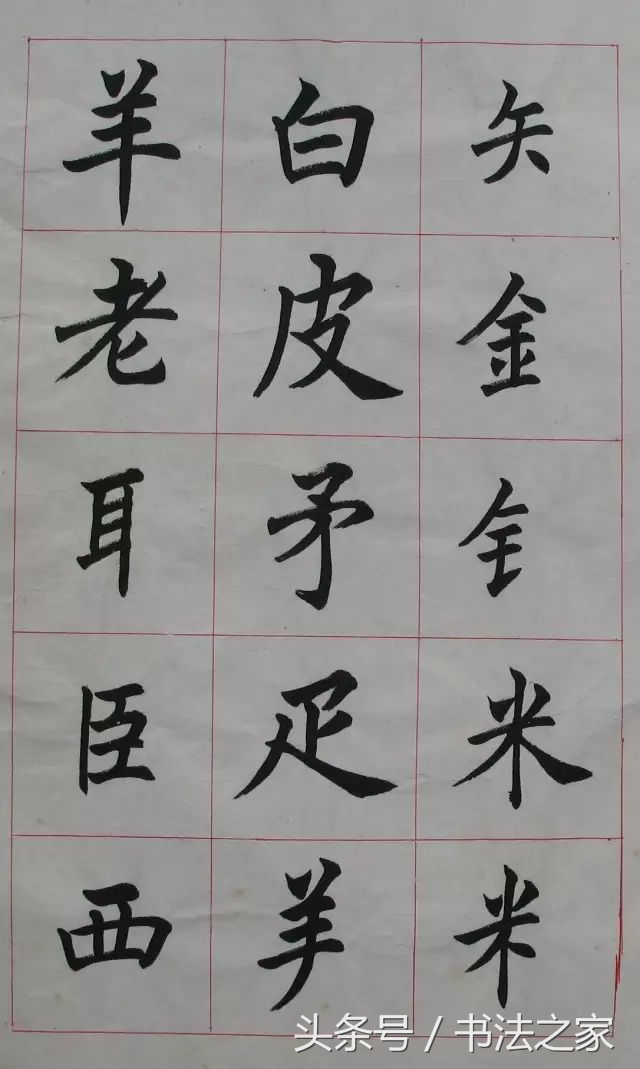 矢金釒米米
白皮矛疋⺶
羊老耳臣西
头条号 / 书法之家